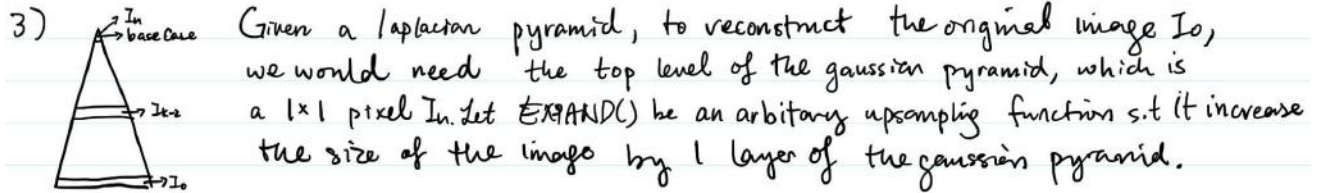 3)
In
base Case
Given a laplacian pyramid, to reconstruct the original image Io,
we would need the top level of the gaussian pyramid, which is
Ik-2
a 1x1 pixel In. Let EXPAND() be an arbitary upsampling function s.t it increase
the size of the image by 1 layer of the gaussian pyramid.
Io